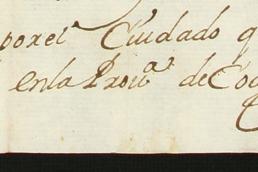 por el Ciudado q
en la Prov.ª de Co